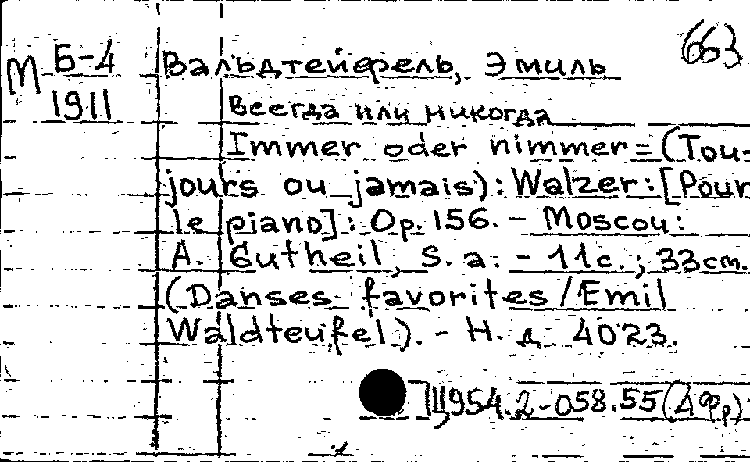 663
М Б-4
1911
Вальдтейфель, Эмиль
Всегда или никогда
Immer oder nimmer = (Tou-
jours ou jamais): Walzer: [Pour
le piano]: Op. 156. - Moscou:
A. Gutheil, S. a. - 11 с.; 33 cm.
(Danses favorites / Emil
Waldteufel). - Н. д. 4023.
Щ954.2-058.55